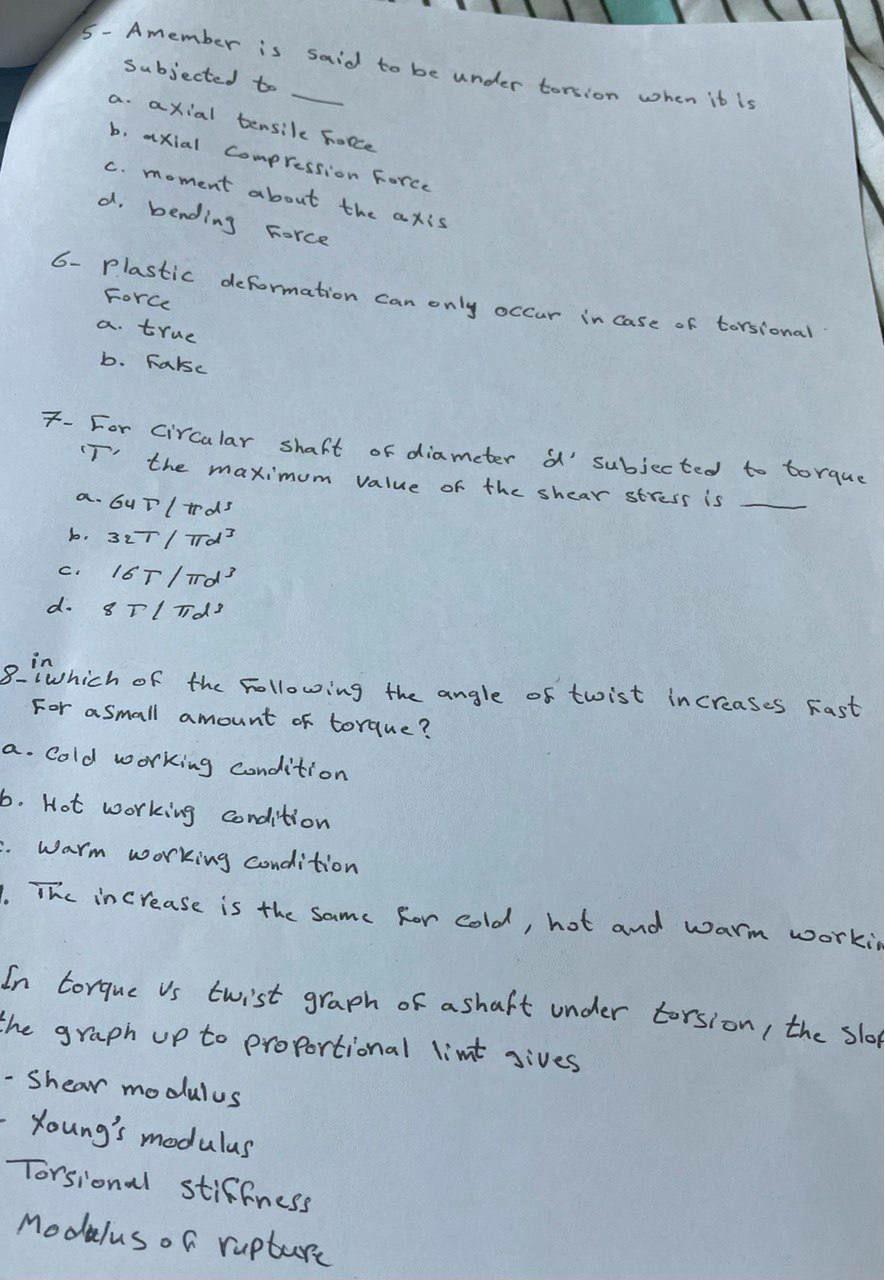 5- Amember is said to be under torsion when it is
subjected to ___
a. axial tensile Force
b. axial compression Force
c. moment about the axis
d. bending Force
6- Plastic deformation can only occur in case of torsional
Force
a. true
b. False
7- For circular shaft of diameter 'd' subjected to torque
'T' the maximum value of the shear stress is ___
a. 64T/πd³
b. 32T/πd³
c. 16T/πd³
d. 8T/πd³
in
8- which of the following the angle of twist increases fast
For a small amount of torque?
a. Cold working condition
b. Hot working condition
c. Warm working condition
. The increase is the same for cold, hot and warm
In torque vs twist graph of a shaft under torsion, the
the graph up to proportional limt gives
- Shear modulus
- Young's modulus
Torsional stiffness
Modulus of rupture